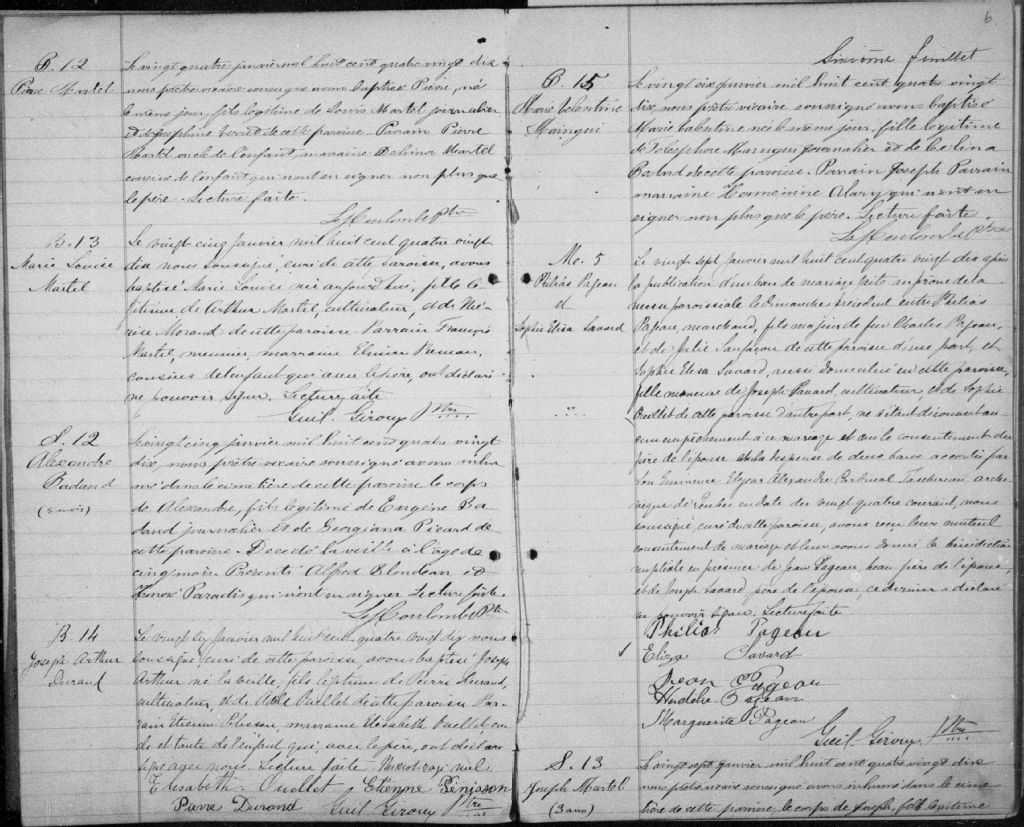 B. 12
Pierre Martel
Le vingt quatre janvier mil huit cent quatre vingt dix
nous prêtre vicaire soussigné avons baptisé Pierre, né
le même jour, fils légitime de Louis Martel journalier
et de Joséphine de cette paroisse. Parrain Pierre
Martel oncle de l'enfant, marraine Delima Martel
cousine de l'enfant qui n'ont su signer non plus que
le père. Lecture faite.
L. H. Coulombe Ptre
B. 13
Marie Louise
Martel
Le vingt cinq Janvier mil huit cent quatre vingt
dix nous soussigné, curé de cette paroisse, avons
baptisé Marie Louise née aujourd'hui, fille lé-
gitime de Arthur Martel, cultivateur, et de
Morand de cette paroisse Parrain François
Martel, meunier, marraine
cousins de l'enfant qui avec le père, ont déclaré
ne pouvoir signer. Lecture faite
Guil. Giroux Ptre
S. 12
Alexandre
Badaud
(5 mois)
Le vingt cinq janvier mil huit cent quatre vingt
dix, nous prêtre vicaire soussigné avons inhu-
mé dans le cimetière de cette paroisse le corps
de Alexandre, fils légitime de Eugène Ba-
daud journalier et de Georgiana Picard de
cette paroisse. Décédé la veille à l'âge de
cinq mois. Présents Alfred Blondeau et
Paradis qui n'ont su signer. Lecture faite.
L. H. Coulombe Ptre
B. 14
Joseph Arthur
Durand
Le vingt six Janvier mil huit cent quatre vingt dix nous
soussigné curé de cette paroisse, avons baptisé Joseph
Arthur né la veille, fils légitime de Pierre Durand,
cultivateur, et de Ouellet de cette paroisse Par-
rain Etienne Pénisson, marraine Elisabeth Ouellet, on-
cle et tante de l'enfant qui, avec le père, ont déclaré
signer avec nous. Lecture faite. nul
Elisabeth Ouellet Etienne Pénisson
Pierre Durand Guil. Giroux Ptre
6
Sixième feuillet
B. 15
Marie Valentine
Maingui
Le vingt six janvier mil huit cent quatre vingt
dix, nous prêtre vicaire soussigné avons baptisé
Marie Valentine née le même jour, fille légitime
de Télesphore Maingui journalier et de Celina
de cette paroisse. Parrain Joseph Parrain
marraine Herminine Alary qui n'ont su
signer non plus que le père. Lecture faite.
L. H. Coulombe Ptre
Me. 5
Philias Pageau
et
Sophie Eliza Savard
Le vingt sept Janvier mil huit cent quatre vingt dix après
la publication d'un ban de mariage faite au prône de la
messe paroissiale le dimanche précédent entre Philias
Pageau, marchand, fils majeur de feu Charles Pageau,
et de Julie Sanfaçon de cette paroisse d'une part, et
Sophie Eliza Savard, aussi domiciliée en cette paroisse,
fille mineure de Joseph Savard, cultivateur, et de Sophie
Ouellet de cette paroisse d'autre part, ne s'étant découvert au-
cun empêchement à ce mariage et vu le consentement du
père de l'épouse et la dispense de deux bans accordée par
Son Eminence Elzéar Alexandre Cardinal Taschereau arche-
vêque de Québec en date du vingt quatre courant, nous
soussigné, curé de cette paroisse, avons reçu leur mutuel
consentement de mariage et leur avons donné la bénédiction
nuptiale en présence de Jean Pageau, beau père de l'époux,
et de Joseph Savard, père de l'épouse, ce dernier a déclaré
ne pouvoir signer. Lecture faite
Philias Pageau
Eliza Savard
Jean Pageau
Pageau
Marguerite Pageau
Guil. Giroux Ptre
S. 13
Joseph Martel
(3 ans)
Le vingt sept janvier mil huit cent quatre vingt dix
nous prêtre vicaire soussigné avons inhumé dans le cime-
tière de cette paroisse, le corps de Joseph, fils légitime